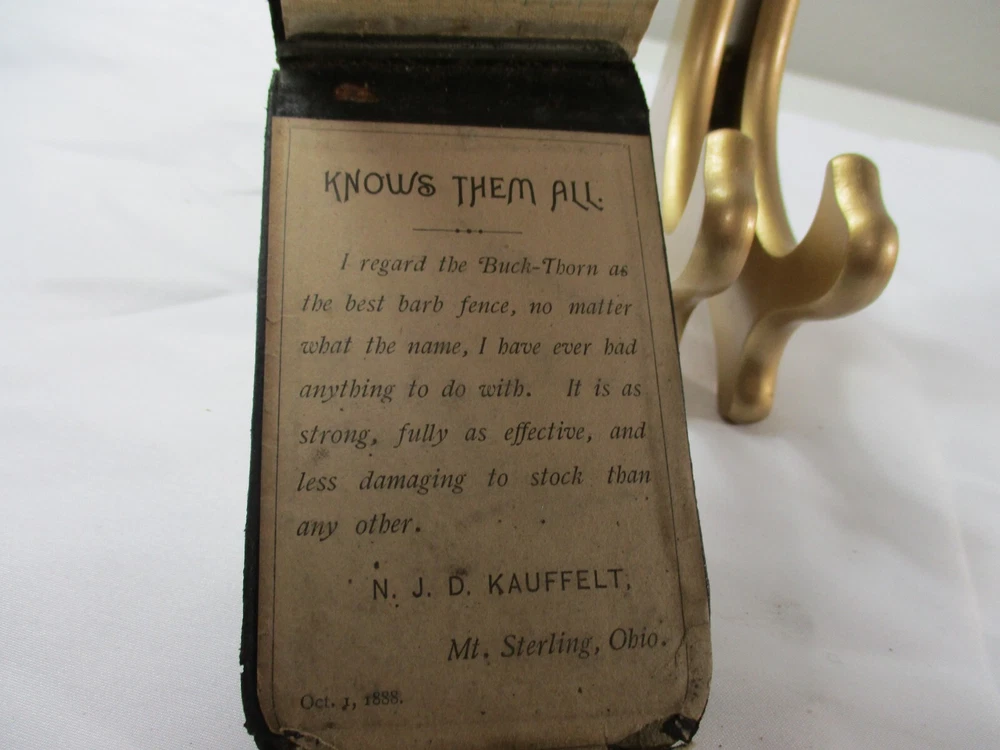 KNOWS THEM ALL.
I regard the Buck-Thorn as
the best barb fence, no matter
what the name, I have ever had
anything to do with. It is as
strong, fully as effective, and
less damaging to stock than
any other.
N. J. D. KAUFFELT,
Mt. Sterling, Ohio.
Oct. 1, 1888.